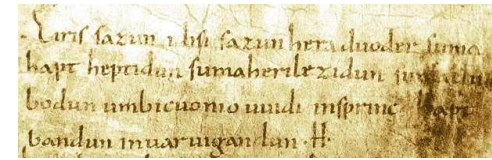 Eiris sazun idisi sazun hera duoder suma
hapt heptidun suma heri lezidun
bodun umbi cuonio uuidi insprinc hapt
bandun inuar uigandun · H ·